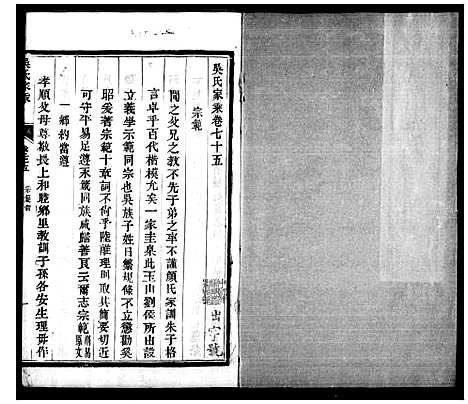 吳氏家乘卷七十五
出字號
宗範
聞之父兄之教不先子弟之率不謹顏氏家訓朱子格
言卓乎百代楷模尤矣一家圭臬此玉山劉侯所由設
立義學示範同宗也吳族子姓日繁規條不立懲勸奚
耶爰著宗範十章詞不何乎陸離理則取其簡要切近
可守平易足遵來茲同族咸歸善良云爾志宗範
一鄉約當遵
孝順父母尊敬長上和睦鄉里教訓子孫各安生理毋作
吳氏家乘
宗範